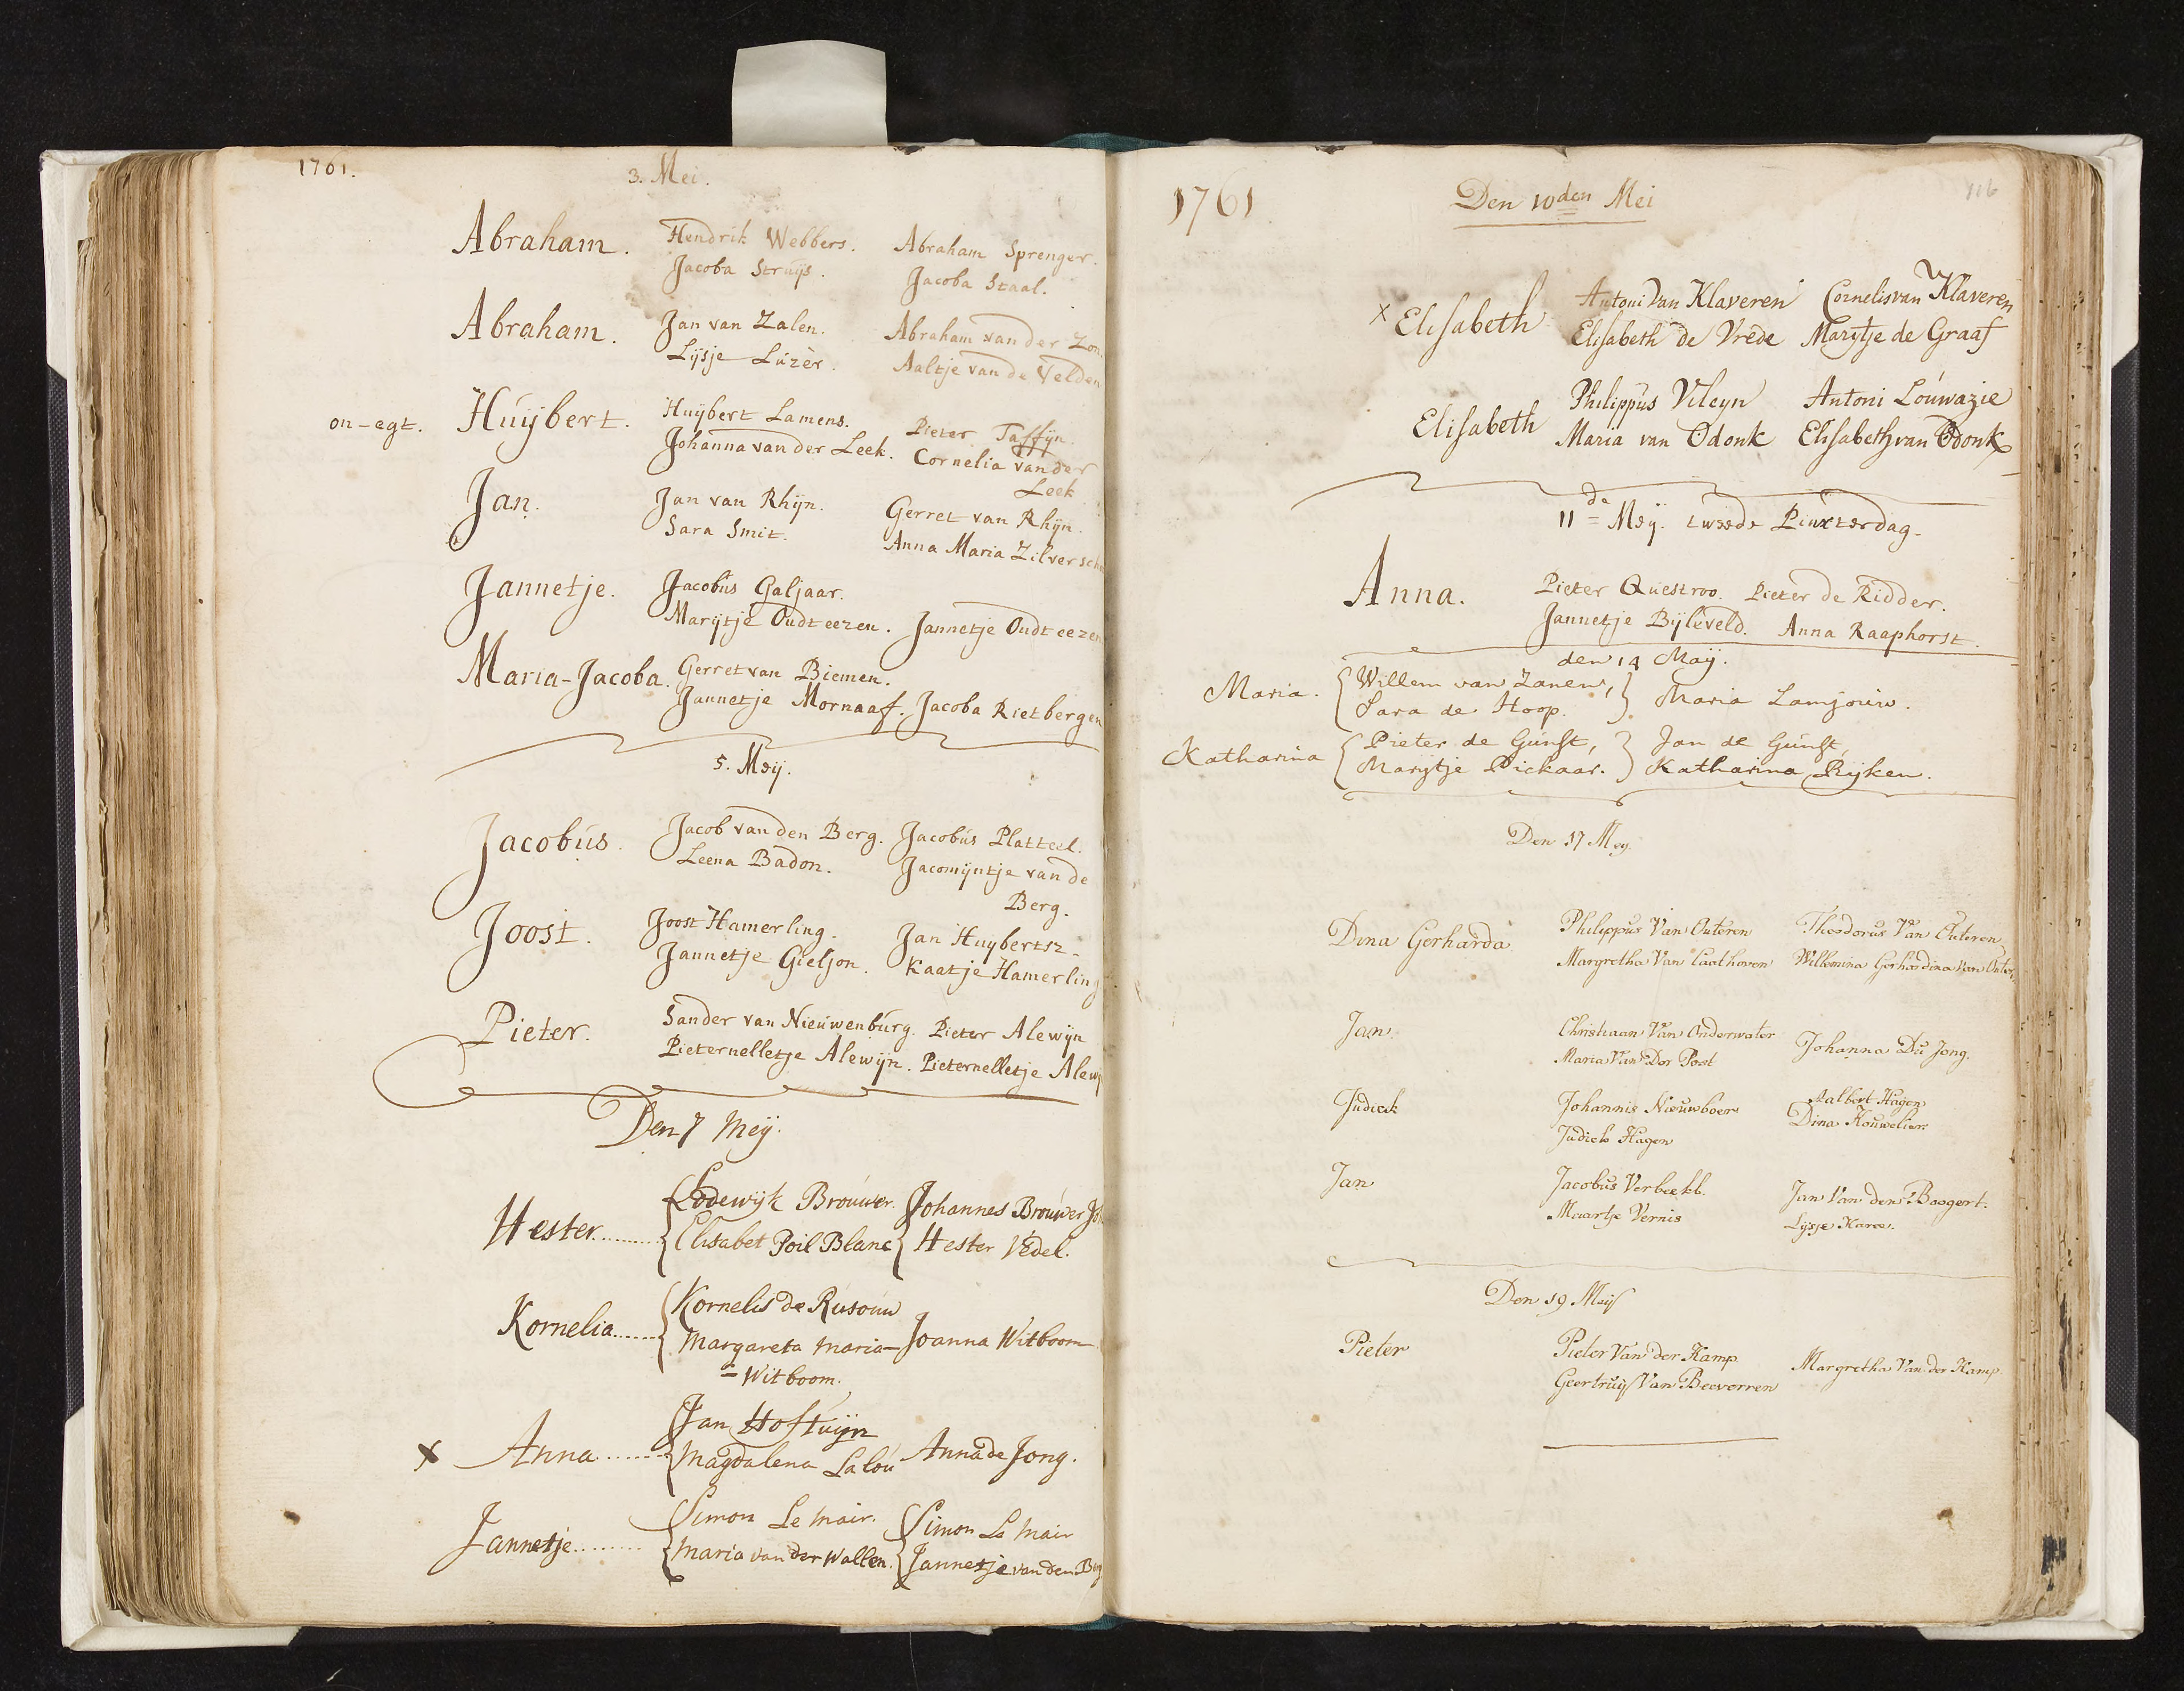 1761.
3. Mei.
Abraham. Hendrik Webbers. Abraham Sprenger.
Jacoba Struijs. Jacoba Staal.
Abraham. Jan van Zalen. Abraham van der Zon.
Lijsje Lúzèr. Aaltje van de Velden
on-egt. Huijbert. Huijbert Lamens. Pieter Taffijn.
Johanna van der Leek. Cornelia van der
Leek
Jan. Jan van Rhijn. Gerret van Rhijn.
Sara Smit. Anna Maria
Jannetje. Jacobus Galjaar.
Marijtje Oudteezen. Jannetje Oudteezen
Maria-Jacoba. Gerret van Biemen.
Jannetje Mornaaf. Jacoba Rietbergen
5. Meij.
Jacobús. Jacob van den Berg. Jacobús Platteel.
Leena Badon. Jacomijntje van de
Berg.
Joost. Joost Hamerling. Jan Huybertsz.
Jannetje Gieljon. Kaatje Hamerling
Pieter. Sander van Nieúwenbúrg. Pieter Alewijn
Pieternelletje Alewijn. Pieternelletje Alewij
Den 7 Meij.
Hester......... Lodewijk Broúwer. Johannes Broúwer
Elisabet Poil Blanc Hester Vedel.
Kornelia...... Kornelis de Rusoúw
Margareta Maria- Joanna Witboom
= Witboom.
x Anna....... Jan Hoftuijn
Magdalena Laloú Anna de Jong.
Jannetje........ Simon Le Mair. Simon Le Mair
Maria van der Wallen. Jannetje van den Berg
1761
Den 10den Mei
116
x Elisabeth Antoni van Klaveren Cornelis van Klaveren
Elisabeth de Vrede Marijtje de Graaf
Elisabeth Philippus Vileyn Antoni Loúwazie
Maria van Odonk Elisabeth van Odonk
11de Meij. tweede Pinxterdag.
Anna. Pieter Questroo. Pieter de Ridder.
Jannetje Bijleveld. Anna Raaphorst.
den 14 Maij.
Maria. Willem van Zanen,
Sara de Hoop. Maria Lamjouw.
Katharina Pieter de Gunst, Jan de Gunst,
Marijtje Pickaar. Katharina Rijken.
Den 17 Mey.
Dina Gerharda Philippus Van Outeren Theodorus Van Outeren
Margretha Van Caathoven Willemina Gerhardina van Outer
Jan Christiaan Van Onderwater Johanna Du Jong.
Maria Van Der Post
Judick Johannis Nieuwboer Aalbert Hagen
Judick Hagen Dina Kouwelier.
Jan Jacobus Verbeekb. Jan Van den Boogert.
Maartje Vernis Lijsje Karee.
Den 19 Meij
Pieter Pieter Van der Kamp Margretha Van der Kamp
Geertruij Van Beeverren